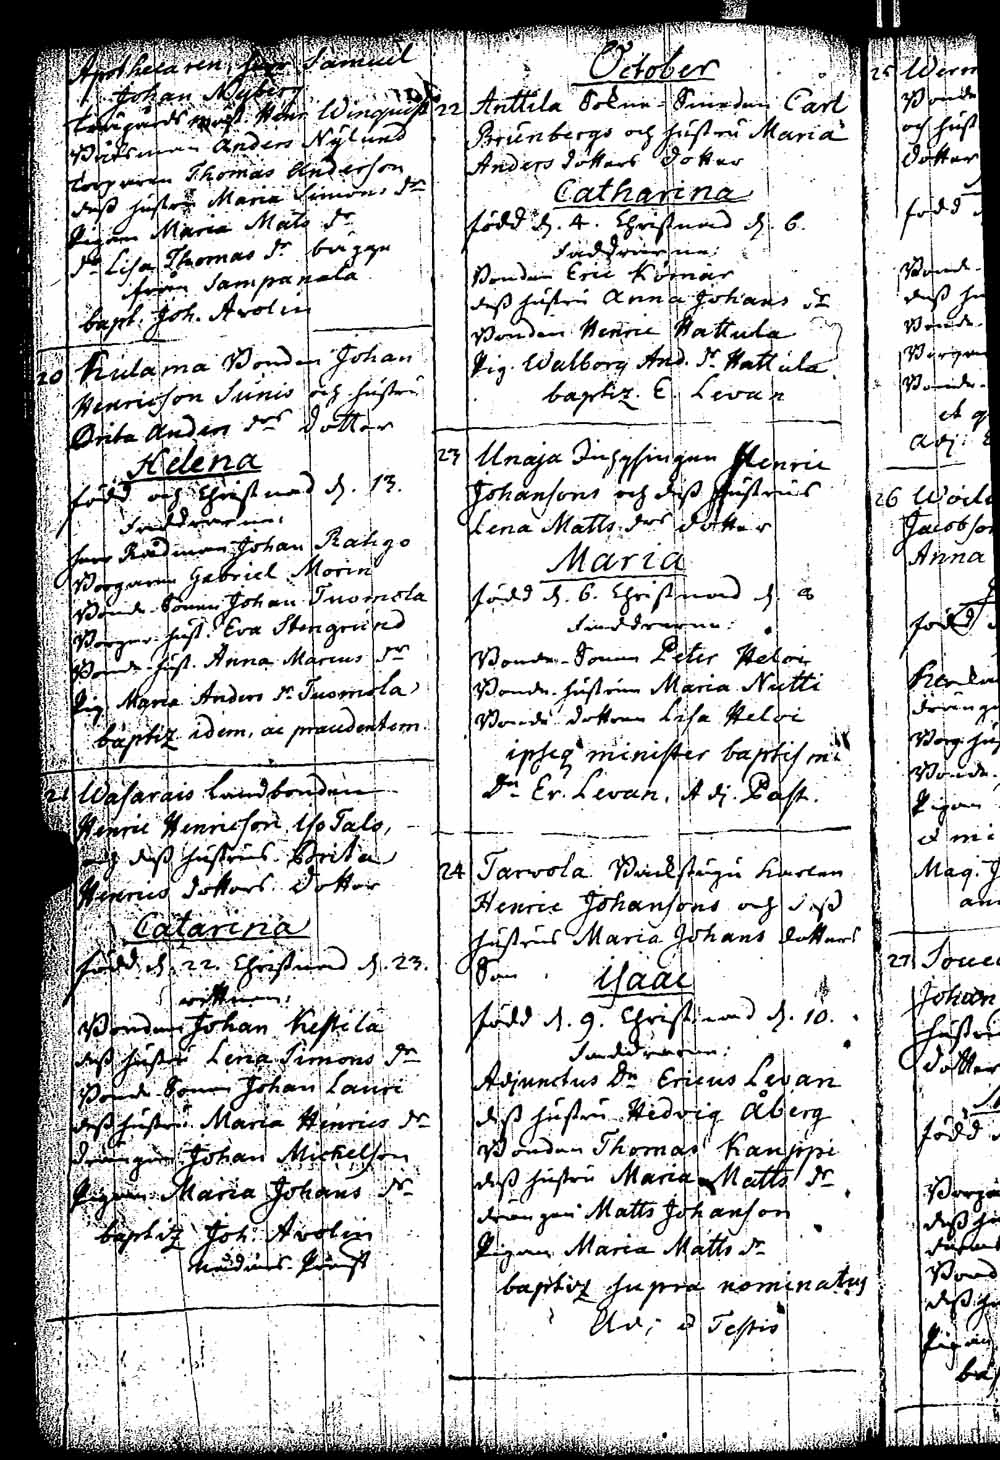 Apothekaren herr Samuel
Johan Nyberg
Trägårds mäst. Henr Winquist
Båtsman Anders Nylund
torparen Thomas Anderson
dess hustru Maria Simons dr
Pigan Maria Mats dr
dr Lisa Thomas dr bägge
från Sampanala
bapt. Joh. Avolin
20 Kulama Bonden Johan
Henricson Sunis och hustru
Brita Anders drs dotter
Helena
född och Christnad d. 13.
Faddrarne:
herr Rådman Johan Rahgo
Borgaren Gabriel Morin
Bonde-Sonen Johan Tuomola
Borgar-hust. Eva Stengrund
Bonde-hust. Anna Marcus dr
Pig. Maria Anders dr Tuomola
baptiz idem, ac praecedentem
21 Wasarais Landbonden
Henric Henricson Iso Talo,
och dess hustrus Brita
Henrics dotters dotter
Catarina
född d. 22. Christnad d. 23.
wittnen:
Bonden Johan Kestilä
dess hustru Lena Simons dr
Bonde Sonen Johan Lauri
dess hustru Maria Henrics dr
drängen Johan Michelson
Pigan Maria Johans dr
baptiz Joh. Avolin
October
22 Anttila Sokne-Smeden Carl
Brunbergs och hustru Maria
Anders dotters dotter
Catharina
född d. 4. Christnad d. 6.
Faddrarne:
Bonden Eric Komar
dess hustru Anna Johans dr
Bonden Henric Hattula
Pig. Walborg And. dr Hattula
baptiz. E. Levan
23 Unaja Inhysingen Henric
Johansons och dess hustrus
Lena Matts drs dotter
Maria
född d. 6. Christnad d. 8
Faddrarne:
Bonde-Sonen Peter Heloi
Bonde-hustrun Maria Nutti
Bonde dottren Lisa Heloi
ipseq minister baptismi
Dn Er. Levan, Adj. Past.
24 Tarvola Backstugu karlen
Henric Johansons och dess
hustrus Maria Johans dotters
Son
Isaac
född d. 9. Christnad d. 10.
Faddrarne:
Adjunctus Dn Ericus Levan
dess hustru Hedvig Åberg
Bonden Thomas Kauppi
dess hustru Maria Matts dr
drängen Matts Johanson
Pigan Maria Matts dr
baptiz supra nominatus
Adj & Testis
25
Bonde
och hust
dotter
född
Bonde-
dess hu
Bonde-
Bonde-
26
Jacobson
Anna
född
Pigan
Mag. J
27
Johan
hustru
dotter
född
dess hu
Bond
dess hu
Pigan